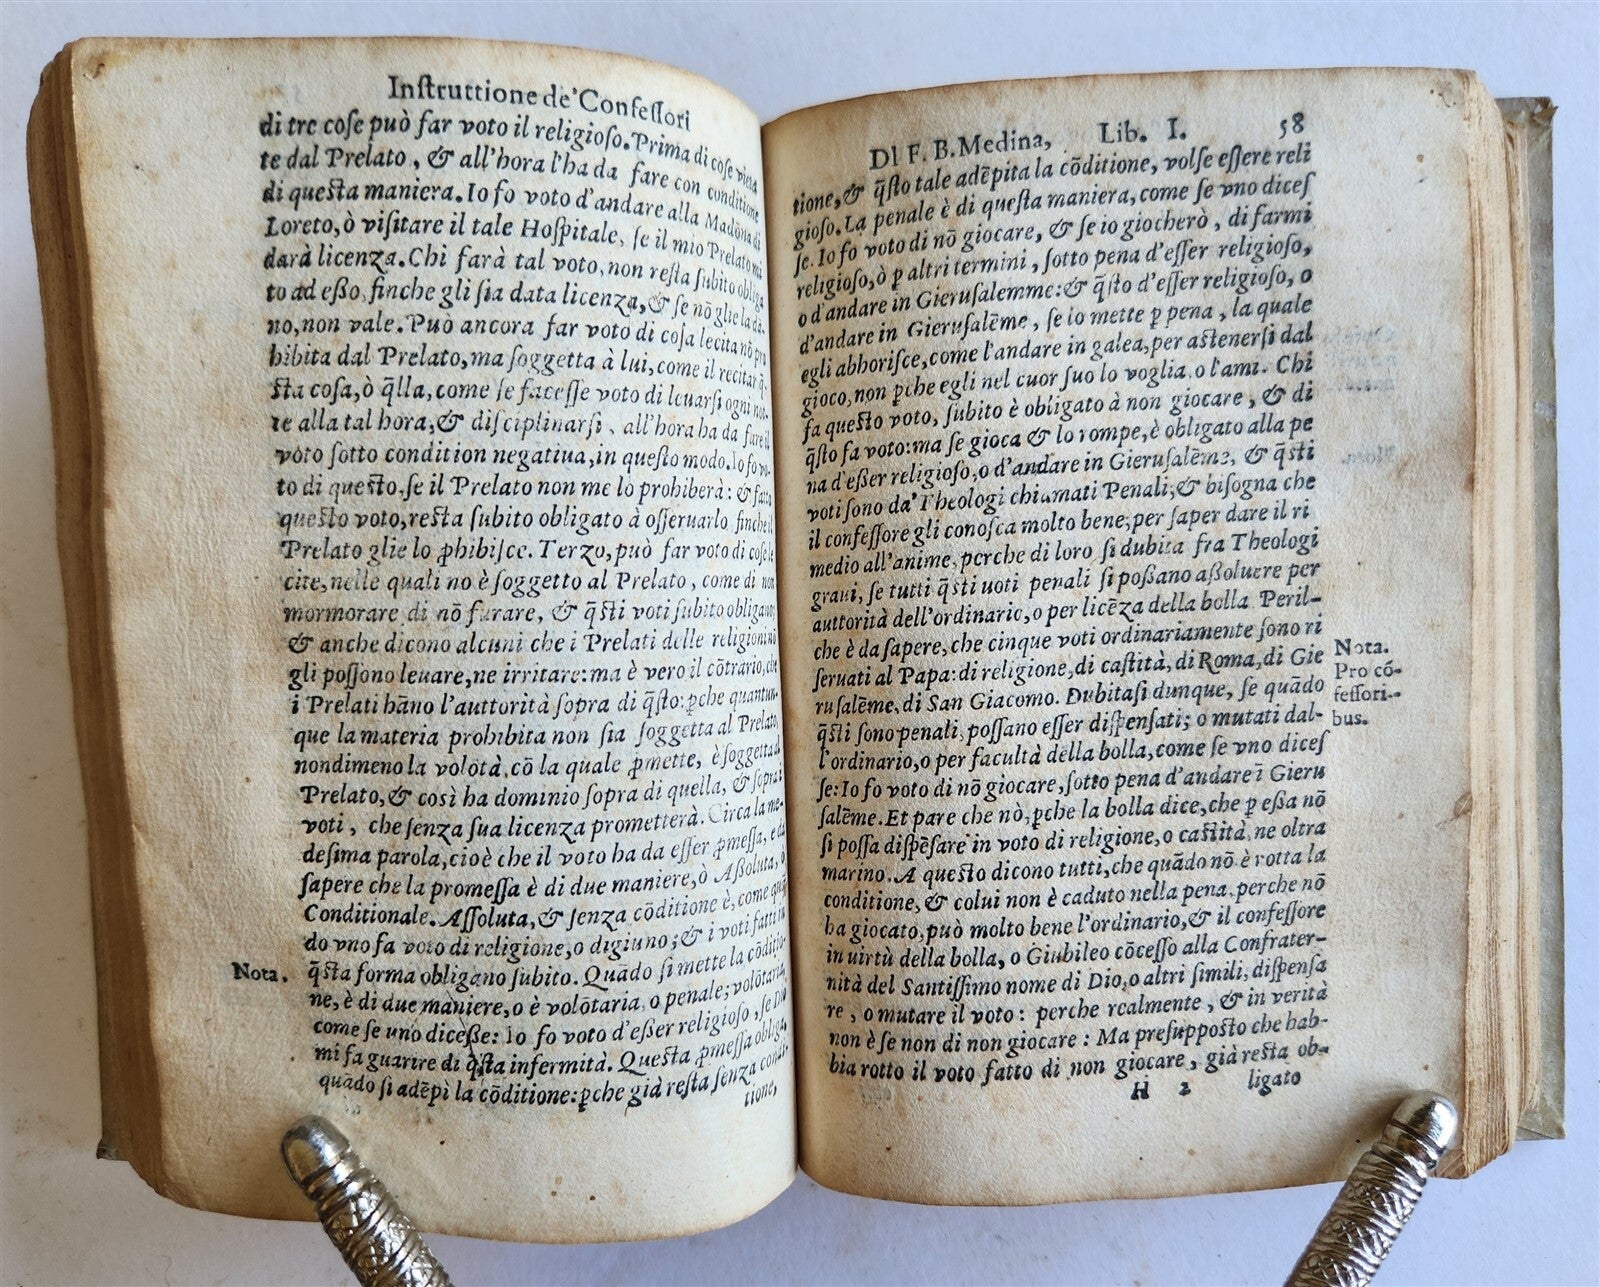 Inſtruttione de' Confeſſori
di tre coſe può far voto il religioſo. Prima di coſe vieta
te dal Prelato, & all'hora l'ha da fare con conditione
di questa maniera. Io fo voto d'andare alla Madōna di
Loreto, ò viſitare il tale Hoſpitale, ſe il mio Prelato mi
darà licenza. Chi farà tal voto, non reſta ſubito obliga
to ad eßo, finche gli ſia data licenza, & ſe nō glie la da-
no, non vale. Può ancora far voto di coſa lecita nō pro
hibita dal Prelato, ma ſoggetta à lui, come il recitar q̄-
sta coſa, ò q̄lla, come ſe faceſſe voto di leuarſi ogni not-
te alla tal hora, & diſciplinarſi, all'hora ha da fare il
voto ſotto condition negatiua, in queſto modo. Io fo vo-
to di questo, ſe il Prelato non me lo prohiberà: & fatto
questo voto, resta ſubito obligato à oſſeruarlo finche il
Prelato glie lo ꝓhibiſce. Terzo, può far voto di coſe le
cite, nelle quali no è ſoggetto al Prelato, come di non
mormorare, di nō furare, & q̄sti voti ſubito obligano:
& anche dicono alcuni che i Prelati delle religioni nō
gli poſſono leuare, ne irritare: ma è vero il cōtrario, che
i Prelati hāno l'auttorità ſopra di q̄sto: ꝑche quantun-
que la materia prohibita non ſia ſoggetta al Prelato,
nondimeno la volōtà, cō la quale ꝓmette, è ſoggetta al
Prelato, & così ha dominio ſopra di quella, & ſopra i
voti, che ſenza ſua licenza prometterà. Circa la me-
deſima parola, cioè che il voto ha da eſſer ꝓmeſſa, è da
ſapere che la promeſſa è di due maniere, ò Aſſoluta, ò
Conditionale. Aſſoluta, & ſenza cōditione è, come quā
do vno fa voto di religione, o digiuno; & i voti fatti in
Nota. q̄sta forma obligano ſubito. Quādo ſi mette la cōditio-
ne, è di due maniere, o è volōtaria, o penale; volōtaria,
come ſe uno diceße: Io fo voto d'eßer religioſo, ſe Dio
mi fa guarire di q̄sta infermità. Questa ꝓmeſſa obliga,
quādo ſi adēpì la cōditione: ꝑche già reſta ſenza condi-
tione,
DI F. B. Medina, Lib. I. 58
tione, & q̄ſto tale adēpita la cōditione, volſe eſſere reli
gioſo. La penale è di queſta maniera, come ſe vno diceſ
ſe. Io fo voto di nō giocare, & ſe io giocherò, di farmi
religioſo, ò ꝑ altri termini, ſotto pena d'eſſer religioſo,
o d'andare in Gieruſalemme: & q̄ſto d'eſſer religioſo, o
d'andare in Gieruſalēme, ſe io mette ꝑ pena, la quale
egli abhoriſce, come l'andare in galea, per astenerſi dal
gioco, non ꝑche egli nel cuor ſuo lo voglia, o l'ami. Chi
fa questo voto, ſubito è obligato à non giocare, & di
q̄ſto fa voto: ma ſe gioca & lo rompe, è obligato alla pe
na d'eßer religioſo, o d'andare in Gieruſalēme, & q̄ſti
voti ſono da' Theologi chiamati Penali; & biſogna che
il confeſſore gli conoſca molto bene, per ſaper dare il ri
medio all'anime, perche di loro ſi dubita fra Theologi
graui, ſe tutti q̄ſti uoti penali ſi poßano aßoluere per
auttorità dell'ordinario, o per licēza della bolla. Peril-
che è da ſapere, che cinque voti ordinariamente ſono ri
ſeruati al Papa: di religione, di castità, di Roma, di Gie
ruſalēme, di San Giacomo. Dubitaſi dunque, ſe quādo
q̄ſti ſono penali, poſſano eſſer diſpenſati; o mutati dal-
l'ordinario, o per facultà della bolla, come ſe vno diceſ
ſe: Io fo voto di nō giocare, ſotto pena d'andare ī Gieru
ſalēme. Et pare che nò, ꝑche la bolla dice, che ꝑ eßa nō
ſi poſſa diſpēſare in voto di religione, o castità, ne oltra
marino. A questo dicono tutti, che quādo nō è rotta la
conditione, & colui non è caduto nella pena, perche nō
ha giocato, può molto bene l'ordinario, & il confeſſore
in uirtù della bolla, o Giubileo cōceſſo alla Confrater-
nità del Santiſſimo nome di Dio, o altri ſimili, diſpenſa
re, o mutare il voto: perche realmente, & in verità
non è ſe non di non giocare: Ma preſuppoſto che hab-
bia rotto il voto fatto di non giocare, già resta ob-
H 2 ligato
Nota.
Pro cō-
feſſori-
bus.